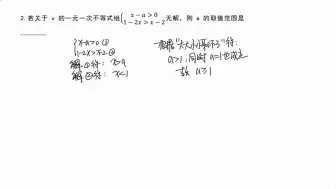 2. 若关于 x 的一元一次不等式组{x−a>0 1−2x>x−2无解，则 a 的取值范围是
x-a>0 ①
1-2x>x-2 ②
解①得：x>a
解②得：x<1
根据"大大小小取不了"得：
a>1，同时 a=1也成立
故 a≥1